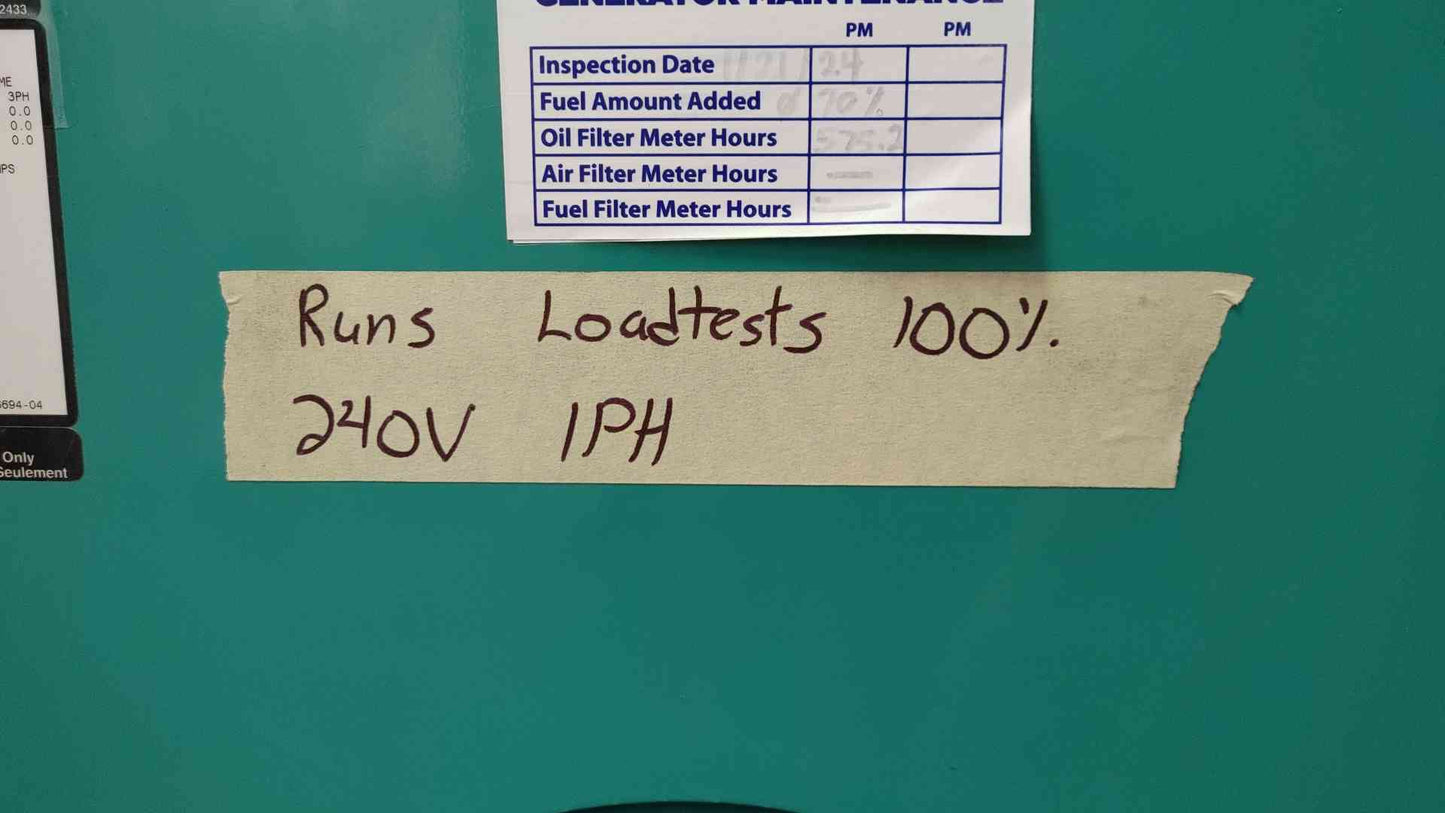 2433
ME
3PH
0.0
0.0
0.0
PS
694-04
Only
Seulement
GENERATOR MAINTENANCE
PM PM
Inspection Date 24
Fuel Amount Added 70%
Oil Filter Meter Hours 575.2
Air Filter Meter Hours —
Fuel Filter Meter Hours —
Runs Loadtests 100%.
240V 1PH